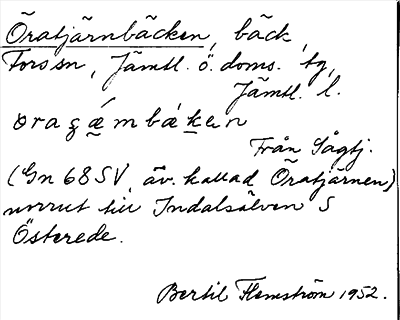 Öratjärnbäcken, bäck
Fors sn, Jämtl. ö. doms. tg,
Jämtl. l.
øragǽmbǽkɐn
Från Sågtj.
(Gn 68 SV, äv. kallad Öratjärnen)
norrut till Indalsälven S
Österede.
Bertil Flemström 1952.